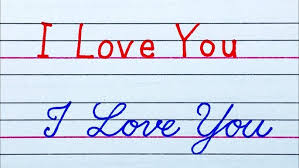 I Love You
I Love You